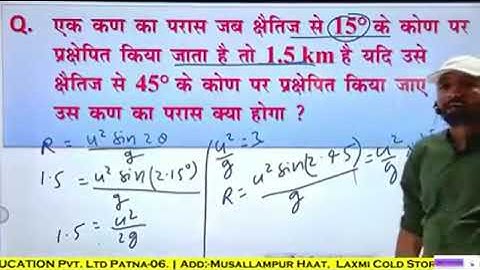 Q. एक कण का परास जब क्षैतिज से 15° के कोण पर
प्रक्षेपित किया जाता है तो 1.5 km है यदि उसे
क्षैतिज से 45° के कोण पर प्रक्षेपित किया जाए
उस कण का परास क्या होगा ?
R = u² sin 2θ / g
1.5 = u² sin(2·15°) / g
1.5 = u² / 2g
u² / g = 3
R = u² sin(2·45) / g = u² / g
UCATION PVT. LTD PATNA-06. | ADD:-MUSALLAMPUR HAAT, LAXMI COLD STOR